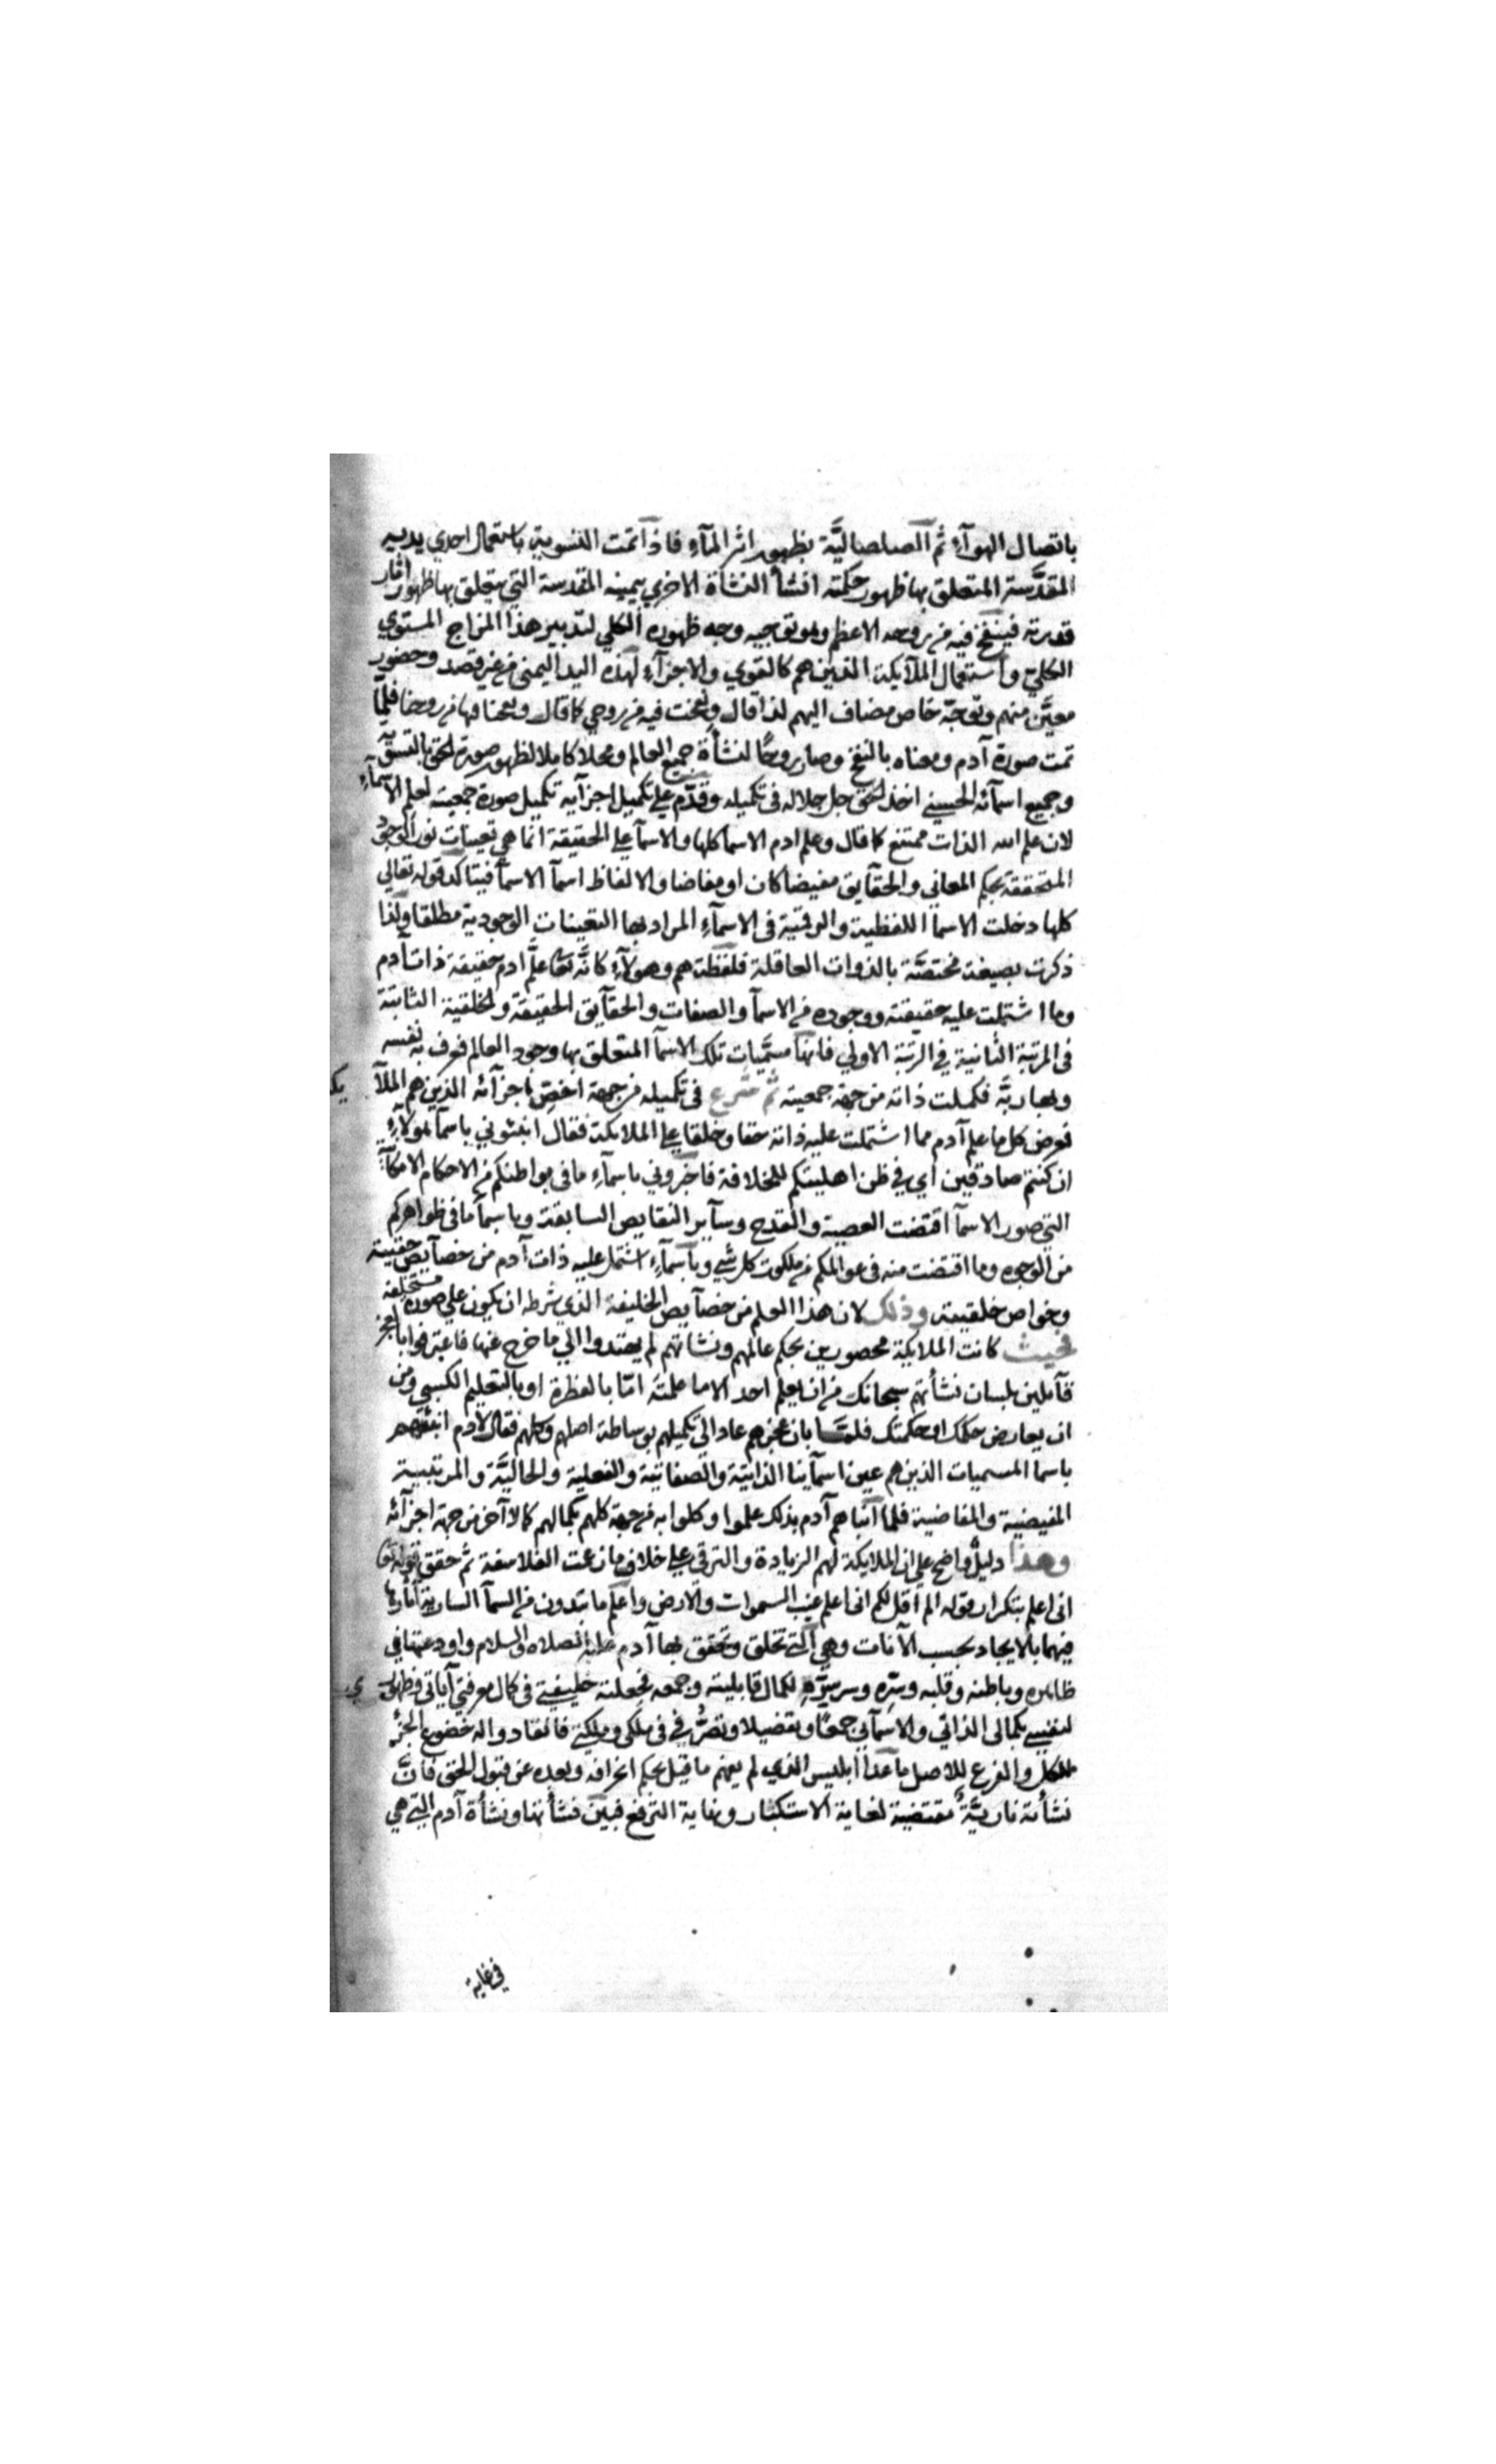 باتصال الهوآء ثم الصلصاليَّة بظهور اثر المآء فاذا تمت التسوية باستعمال احدي يديه
المقدَّسة المتعلق بها ظهور حكمته انشأ النشأة الاخري بيمينه المقدسة التي يتعلق بها ظهور اثار
قدرته فينفخ فيه من روحه الاعظم وهو توجيه وجه ظهوره الكلي لتدبير هذا المزاج المستوي
الكلي واستعمال الملآيكة الذين هم كالقوي والاجزآء لهذه اليد اليمني من غير قصد وحضور
معيَّن منهم وتوجّه خاص مضاف اليهم لذا قال ونفخت فيه من روحي كما قال ونفخنا فيها من روحنا فلمّا
تمت صورة آدم ومعناه بالنفخ وصار روحًا لنشأة جميع العالم ومحلا كاملا لظهور صورة الحق
وجميع اسمآئه الحسني اخذ الحق جل جلاله في تكميله وقدّم علي تكميل اجزآيه تكميل صورة جمعيته لعلم الاسمآء
لان علم الله الذات ممتنع كما قال وعلم ادم الاسما كلها والاسما علي الحقيقة انما هي تعينات نور الوجود
المتحققة بحكم المعاني والحقآيق مفيضا كان او مفاضا والالفاظ اسمآ الاسمآ فبتاكد قوله تعالي
كلها دخلت الاسما اللفظية والرقمية في الاسمآء المراد بها التعينات الوجودية مطلقا ولذا
ذكرت بصيغة مختصَّة بالذوات العاقلة فلفظة هم وهولآء كانَّه تعا علَّم ادم حقيقة ذات آدم
وما اشتملت عليه حقيقته ووجوده من الاسمآ والصفات والحقآيق الحقيقة والخلقية الثابتة
في المرتبة الثانية في الرتبة الاولي فانها مسمَّيات تلك الاسمآ المتعلق بها وجود العالم فعرف به نفسه
وبها ربَّه فكملت ذاته من جهة جمعيته ثم شرع في تكميله من جهة اخصّ باجزآئه الذين هم الملآيكة
فعرض كل ما علم آدم مما اشتملت عليه ذاته حقا وخلقا علي الملايكة فقال انبئوني باسمآ هولآء
ان كنتم صادقين اي في ظن اهليتكم للخلافة فاخبروني باسمآء ما في بواطنكم من الاحكام الامكانية
التي صور الاسمآ اقتضت العصبية والقدح وسآير النقايص السابقة وباسمآ ما في ظواهركم
من الوجوه وما اقتضت منه في عوالمكم من ملكوت كل شي وباسمآء اشتمل عليه ذات آدم من خصآيص حقيته
وخواص خلقيته وذلك لان هذا العلم من خصآيص الخليفة الذي شرطه ان يكون علي صورة مستخلفه
فحيث كانت الملايكة محصورين بحكم عالمهم ونشاتهم لم يهتدوا الي ما خرج عنها فاعترفوا بالعجز
قآيلين بلسان نشأتهم سبحانك من ان يعلم احد الا ما علمته امّا بالفطرة او بالتعليم الكسبي ومن
ان يعارض حكمك او حكمتك فلمّا بان عجزهم عاد الي تكميلهم بوساطة اصلهم وكلهم فقال لادم انبئهم
باسما المسميات الذين هم عين اسمآينا الذاتية والصفاتية والفعلية والحاليَّة والمرتبية
المفيضية والمفاضية فلما انباهم آدم بذلك علموا وكلوا به من جهة كلهم بكمالهم كمالا آخر من جهة اجزآئه
وهذا دليل واضح علي ان الملايكة لهم الزيادة والترقي علي خلاف ما زعمت الفلاسفة ثم حقق قوله تعا
اني اعلم بتكرار قوله الم اقل لكم اني اعلم غيب السموات والارض واعلم ما تبدون من السمآ السارية آثارها
فيهما بالايجاد بحسب الآنات وهي التي تخلق وتحقق بها آدم عليه الصلاه والسلام واودعتها في
ظاهره وباطنه وقلبه وسرّه وسريرته لكمال قابليته وجمعه فجعلته خليفتي في كمال معرفتي آياتي فظهوري
لنفسي بكمالي الذاتي والاسمآيي جمعًا وتفصيلا وتصرُّفي في ملكي وملكوتي فانقادوا له خضوع الجزء
للكل والفرع للاصل ما عدا ابليس الذي لم يفهم ما قيل بحكم انحرافه وبعده عن قبول الحق فانَّ
نشأته ناريَّة مقتضية لغاية الاستكبار ونهاية الترفع فبين نشأتها ونشأة آدم التي هي
في غاية